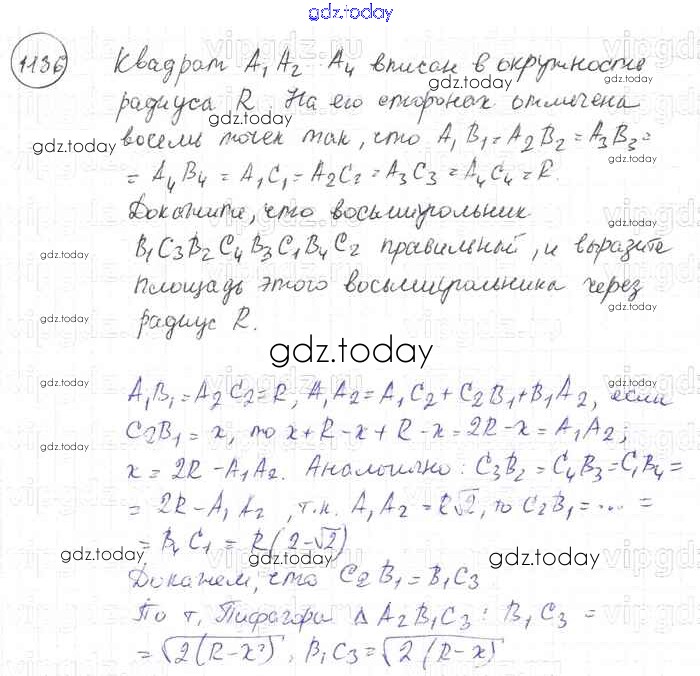 gdz.today
1136
Квадрат A₁A₂ A₄ вписан в окружность
радиуса R. На его сторонах отмечена
восемь точек так, что A₁B₁=A₂B₂=A₃B₃=
= A₄B₄ = A₁C₁=A₂C₂=A₃C₃=A₄C₄=R.
Докажите, что восьмиугольник
B₁C₃B₂C₄B₃C₁B₄C₂ правильный, и выразите
площадь этого восьмиугольника через
радиус R.
gdz.today
A₁B₁=A₂C₂=R, A₁A₂=A₁C₂+C₂B₁+B₁A₂, если
C₂B₁=x, то x+R-x+R-x=2R-x=A₁A₂;
x=2R-A₁A₂. Аналогично: C₃B₂=C₄B₃=C₁B₄=
=2R-A₁A₂, т.к. A₁A₂=R√2, то C₂B₁=...=
=B₄C₁=R(2-√2)
Докажем, что C₂B₁=B₁C₃
По т. Пифагора Δ A₂B₁C₃: B₁C₃=
=√2(R-x²), B₁C₃=√2(R-x)